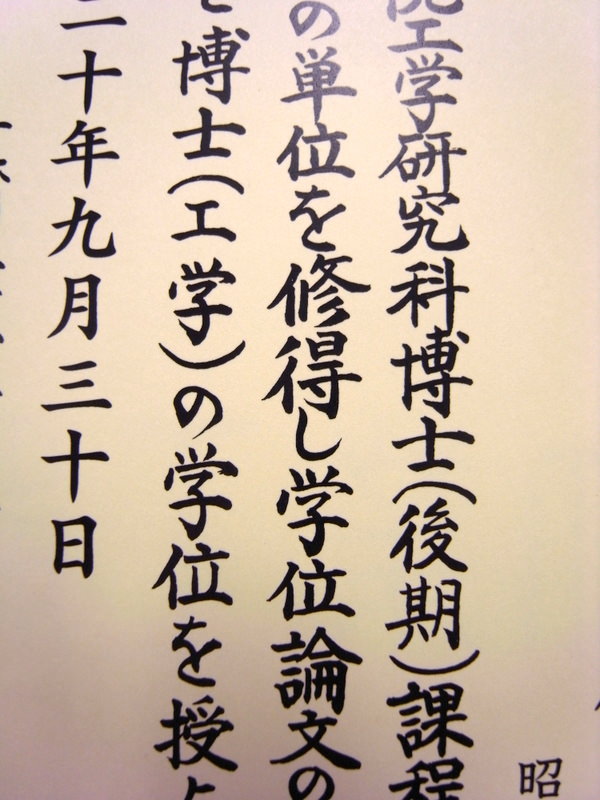 昭
院工学研究科博士(後期)課程
の単位を修得し学位論文の
博士(工学)の学位を授与
二十年九月三十日